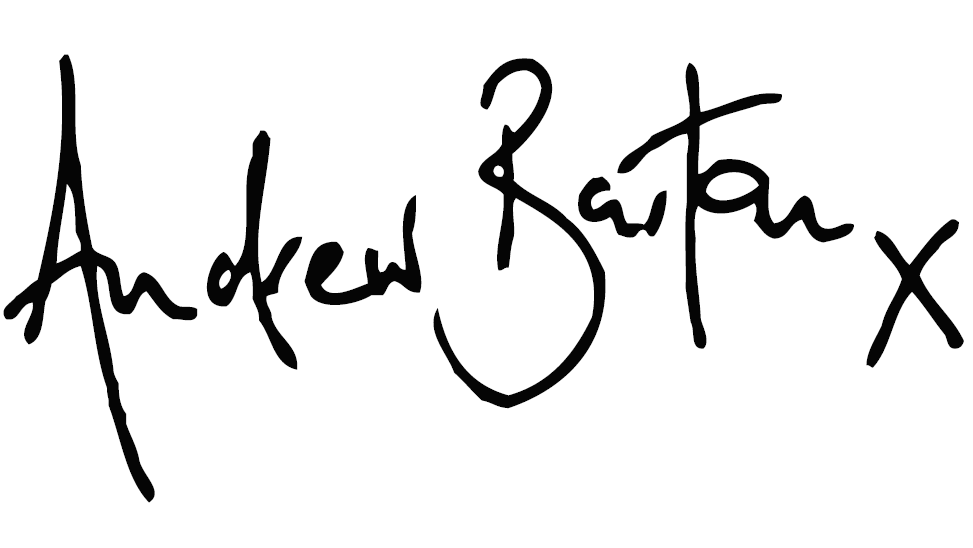 Andrew Barton x